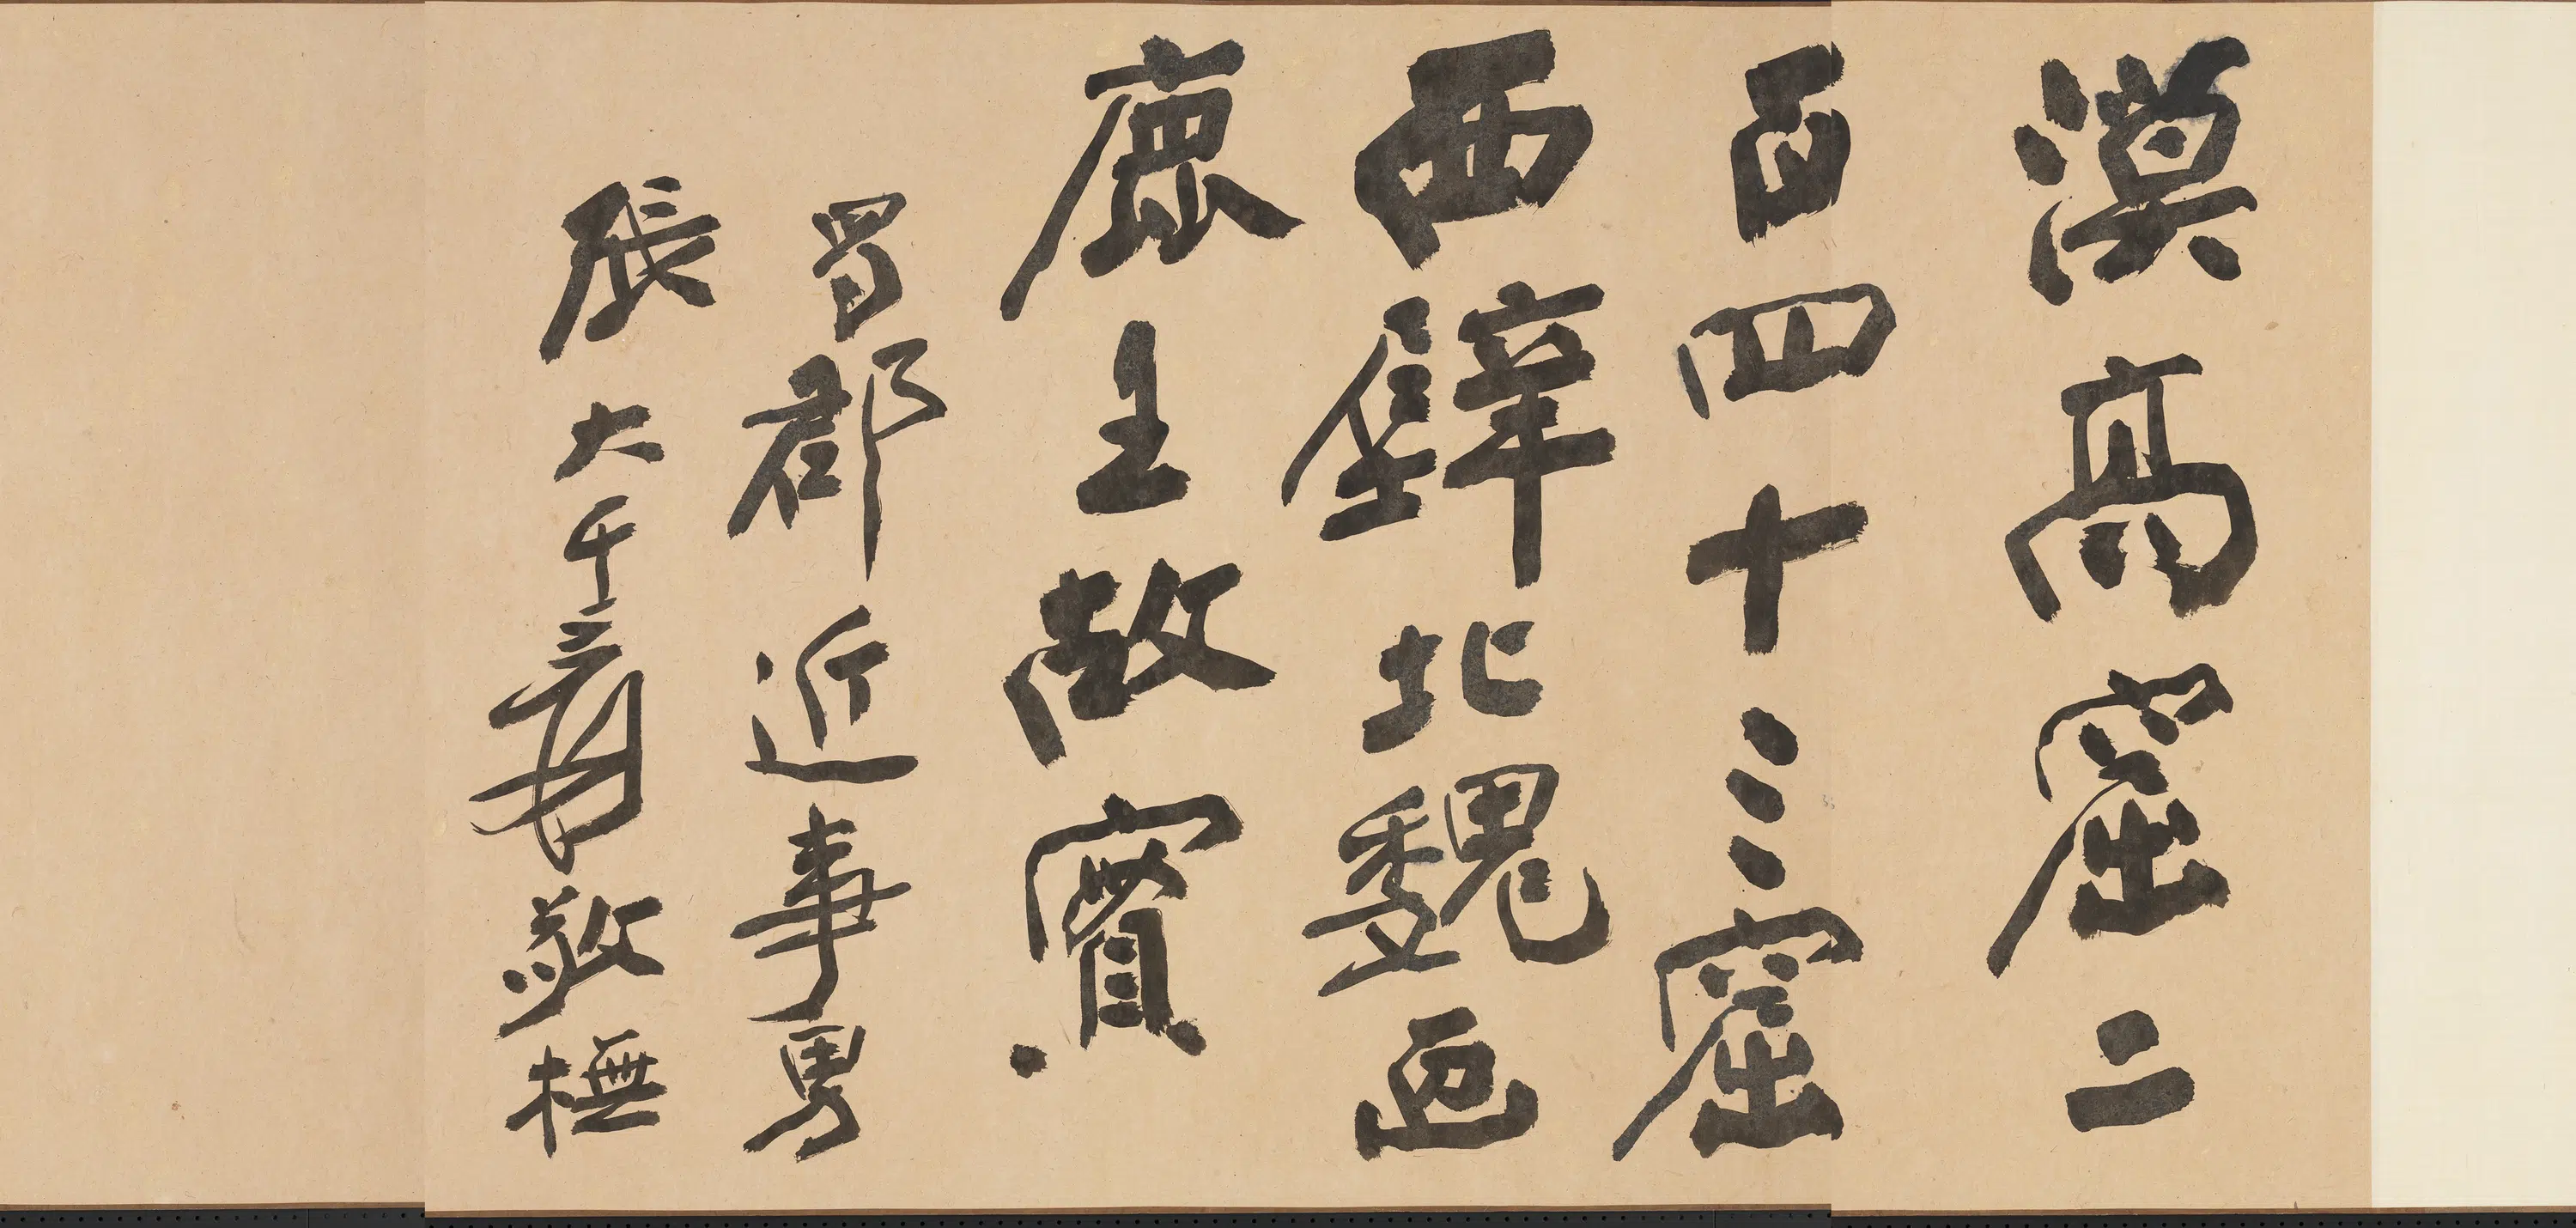 漠高窟二
百四十三窟
西壁北魏画
鹿王故實
蜀郡近事男
張大千爰敬橅